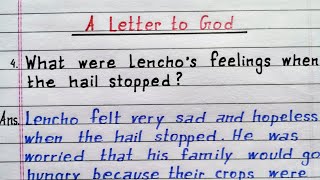 A Letter to God
4. What were Lencho's feelings when
the hail stopped?
Ans. Lencho felt very sad and hopeless
when the hail stopped. He was
worried that his family would go
hungry because their crops were